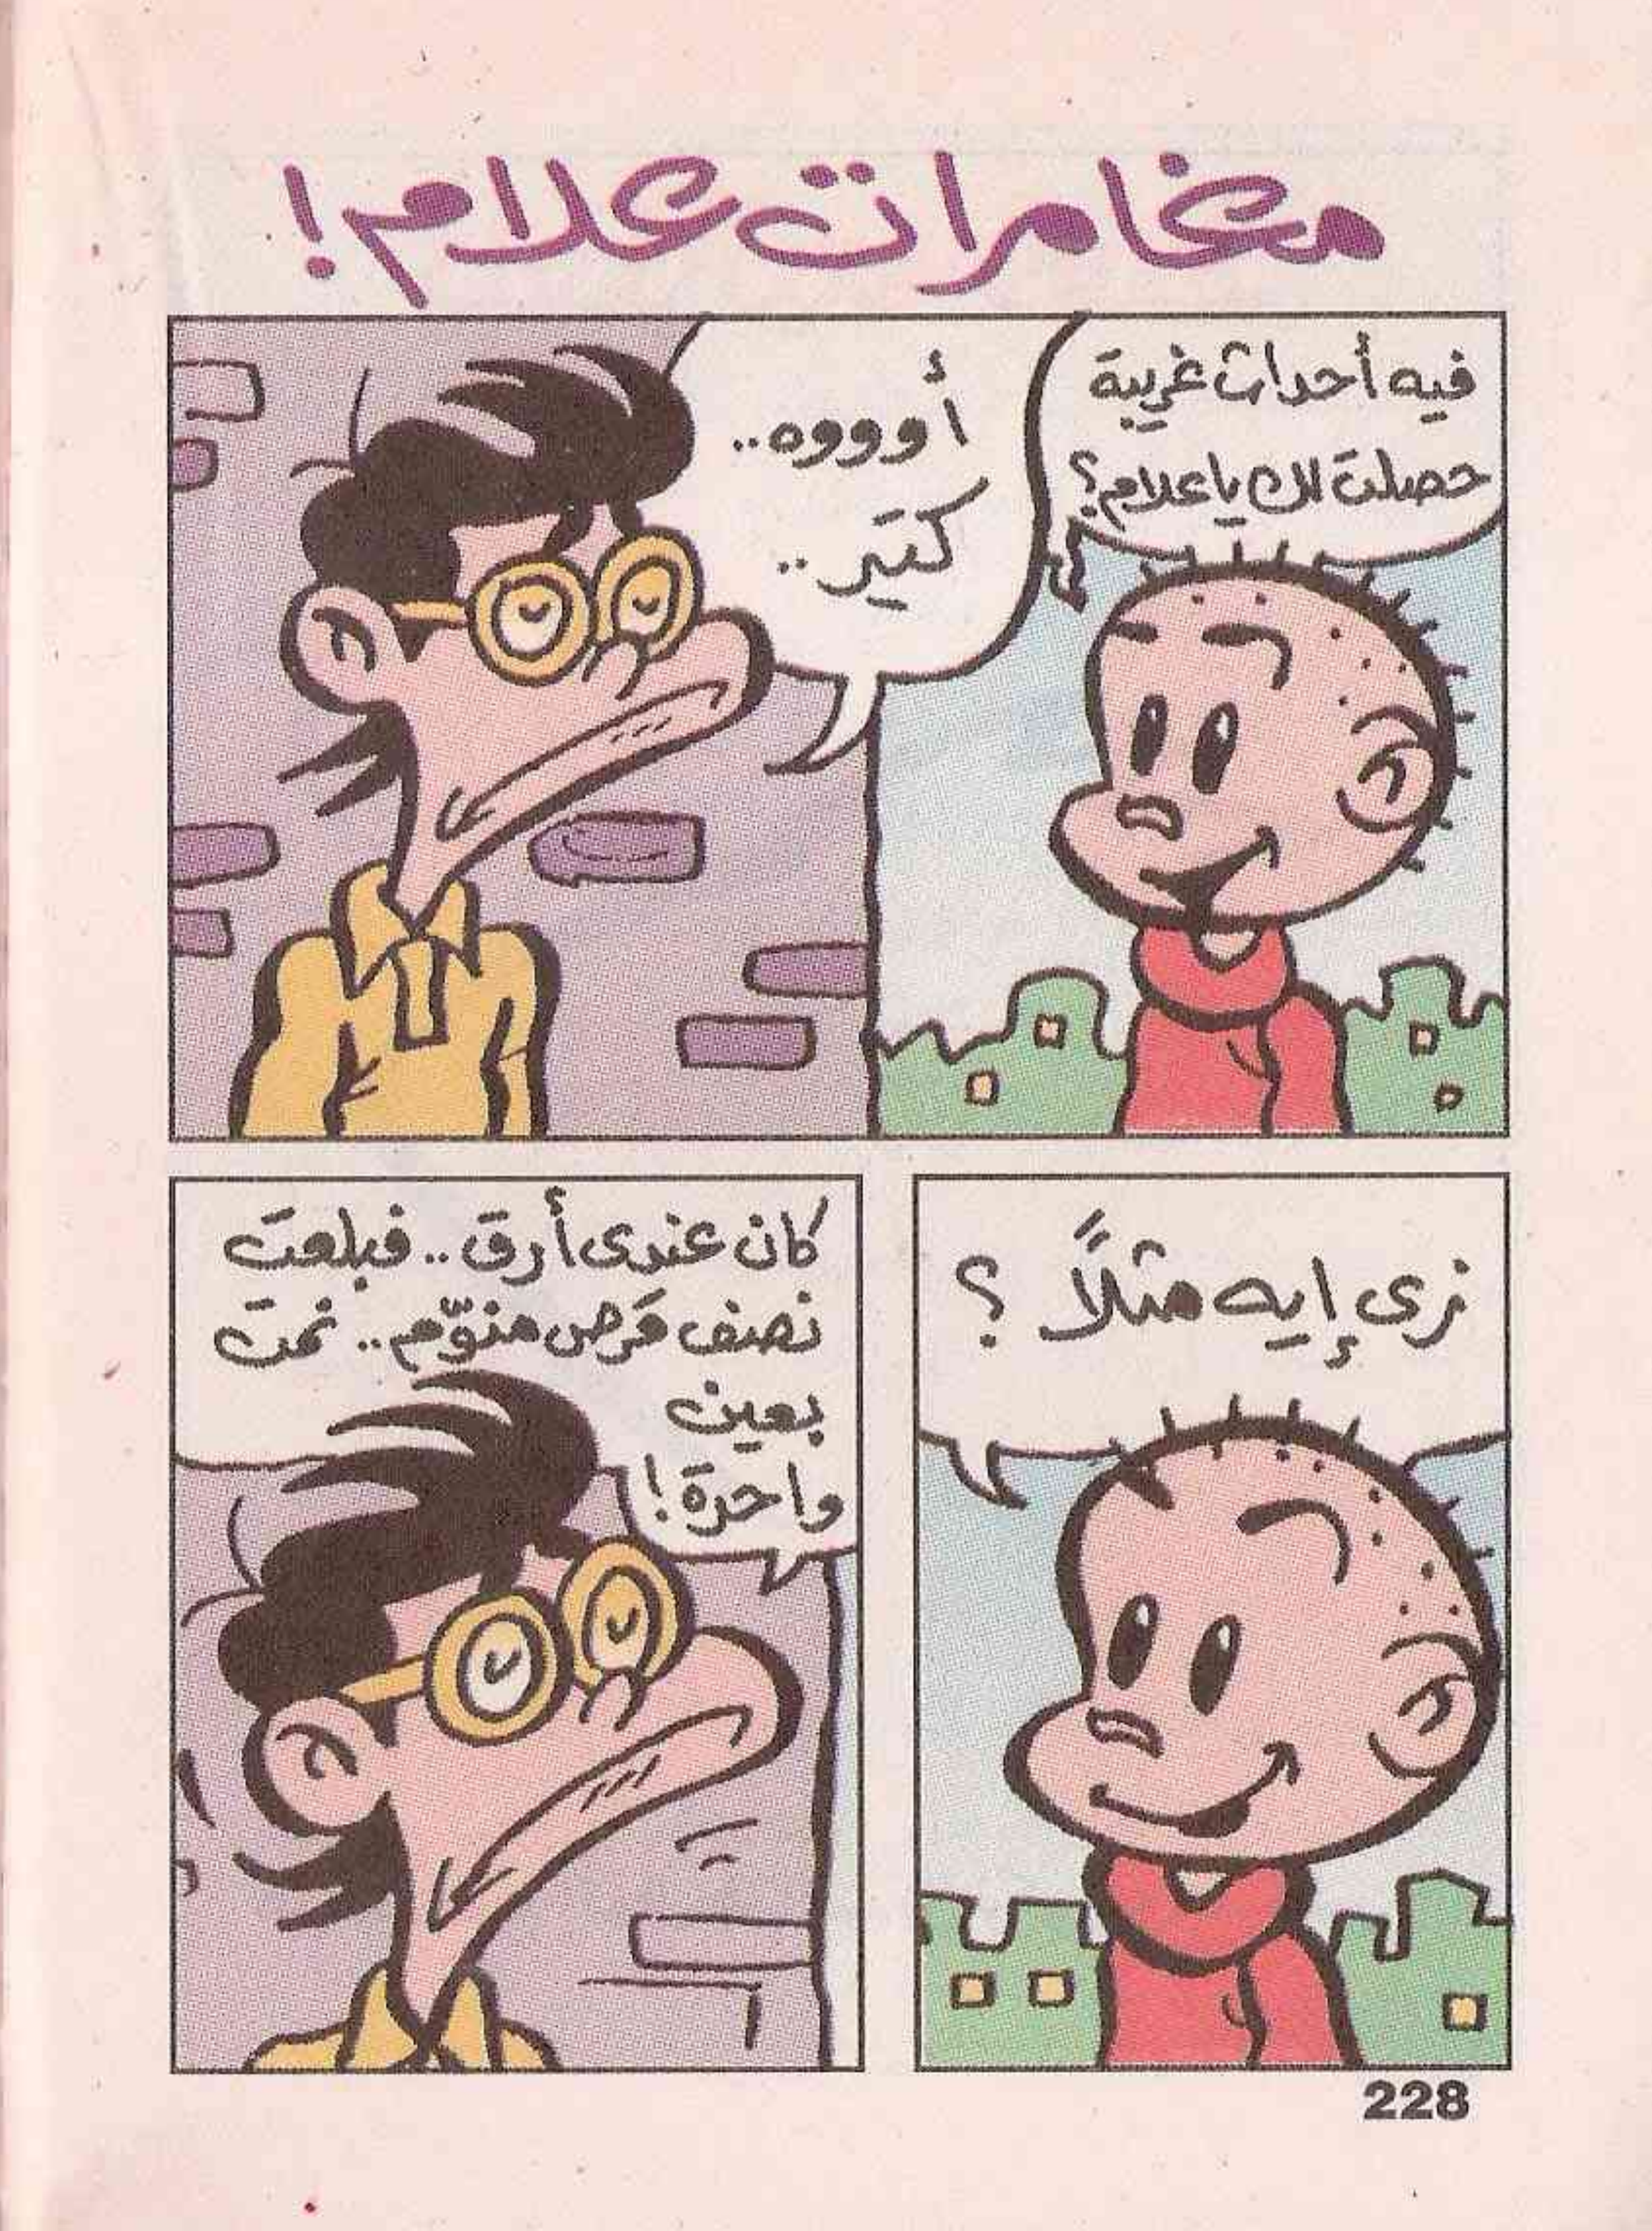 مغامرات علام!
فيه أحداث غريبة
حصلت لك يا علام؟
أوووه..
كتير..
زى إيه مثلاً ؟
كان عندى أرق.. فبلعت
نصف قرص منوّم.. نمت
بعين
واحدة!
228